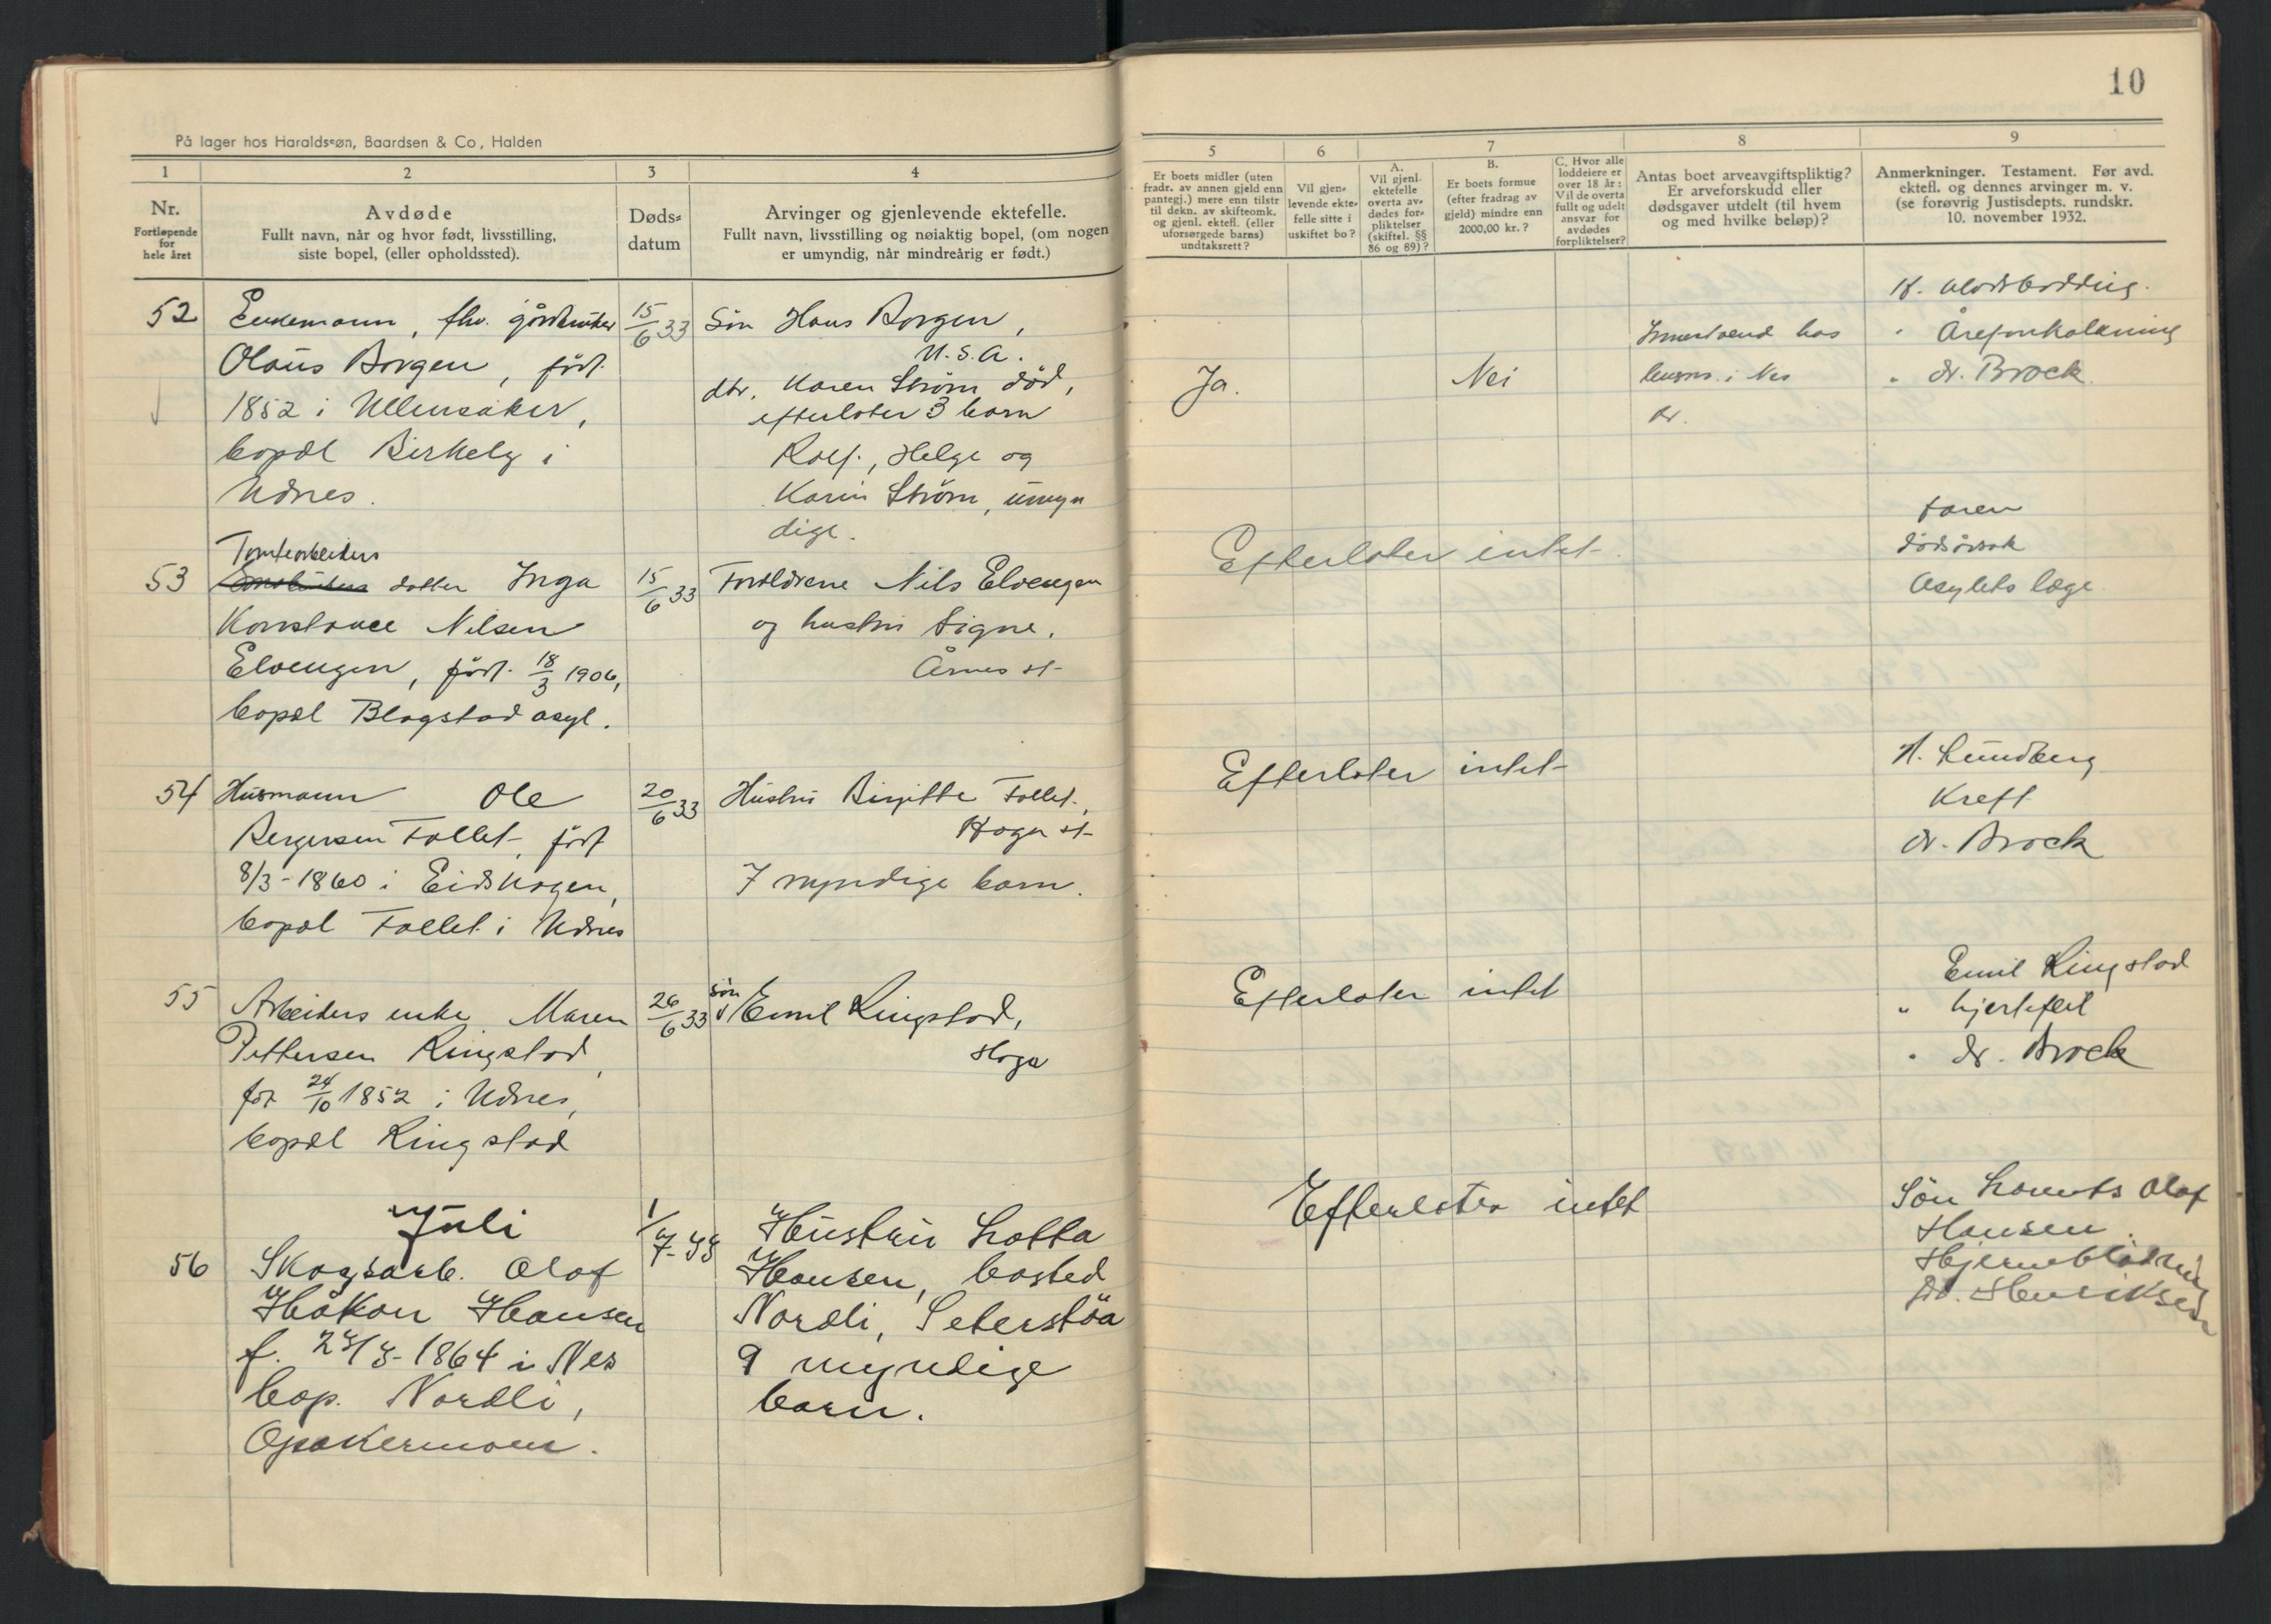 10
På lager hos Haraldssøn, Baardsen & Co, Halden
1
2
3
4
Nr.
Fortløpende
for
hele året
Avdøde
Fullt navn, når og hvor født, livsstilling,
siste bopel, (eller opholdssted).
Døds-
datum
Arvinger og gjenlevende ektefelle.
Fullt navn, livsstilling og nøiaktig bopel, (om nogen
er umyndig, når mindreårig er født.)
52
Enkemann, fhv. gårdbruker
Olaus Borgen, født
1852 i Ullensaker,
bopel Birkely i
Udnes.
15/6 33
Søn Hans Borgen,
U.S.A.
dtr. Karen Strøm død,
efterlater 3 barn
Rolf, Helge og
Karin Strøm, umyn
dige.
53
Tomtearbeiders
datter Inga
Konstance Nilsen
Elvengen, født 18/3 1906,
bopel Blagstad asyl.
15/6 33
Foreldrene Nils Elvengen
og hustru Signe.
Årnes st
54
Husmann Ole
Bergersen Follet, født
8/3-1860 i Eidskogen,
bopel Follet i Udnes
20/6 33
Hustru Birgitte Follet,
Haga st
7 myndige barn.
55
Arbeiders enke Maren
Pettersen Ringstad,
før 24/10 1852 i Udnes,
bopel Ringstad
26/6 33
søn
Emil Ringstad,
Haga
Juli
56
Skogsarb. Olaf
Håkon Hansen
f. 23/3-1864 i Nes
bop. Nordli,
Opakermoen.
1/7-33
Hustru Lotta
Hansen, bosted
Nordli, Seterstøa
9 myndige
barn.
5
6
7
8
9
Er boets midler (uten
fradr. av annen gjeld enn
pantegj.) mere enn tilstr
til dekn. av skifteomk.
og gjenl. ektefl. (eller
uforsørgede barns)
undtaksrett?
Vil gjen-
levende ekte-
felle sitte i
uskiftet bo?
A.
Vil gjenl.
ektefelle
overta av-
dødes for-
pliktelser
(skiftel. §§
86 og 89)?
B.
Er boets formue
(efter fradrag av
gjeld) mindre enn
2000,00 kr.?
C. Hvor alle
loddeiere er
over 18 år:
Vil de overta
fullt og udelt
ansvar for
avdødes
forpliktelser?
Antas boet arveavgiftspliktig?
Er arveforskudd eller
dødsgaver utdelt (til hvem
og med hvilke beløp)?
Anmerkninger. Testament. Før avd.
ektefl. og dennes arvinger m. v.
(se forøvrig Justisdepts. rundskr.
10. november 1932.
Ja.
Nei
hos
lensm. i Nes
Åreforkalkning
dr. Brock
Efterlater intet
faren
dødsårsak
Asylets læge
Efterlater intet
H. Lundberg
Kreft
dr. Brock
Efterlater intet
Emil Ringstad
" hjertefeil
" dr. Brock
Efterlater intet
Søn Olaf
Hansen.
Hjerneblødning
Dr. Henriksen